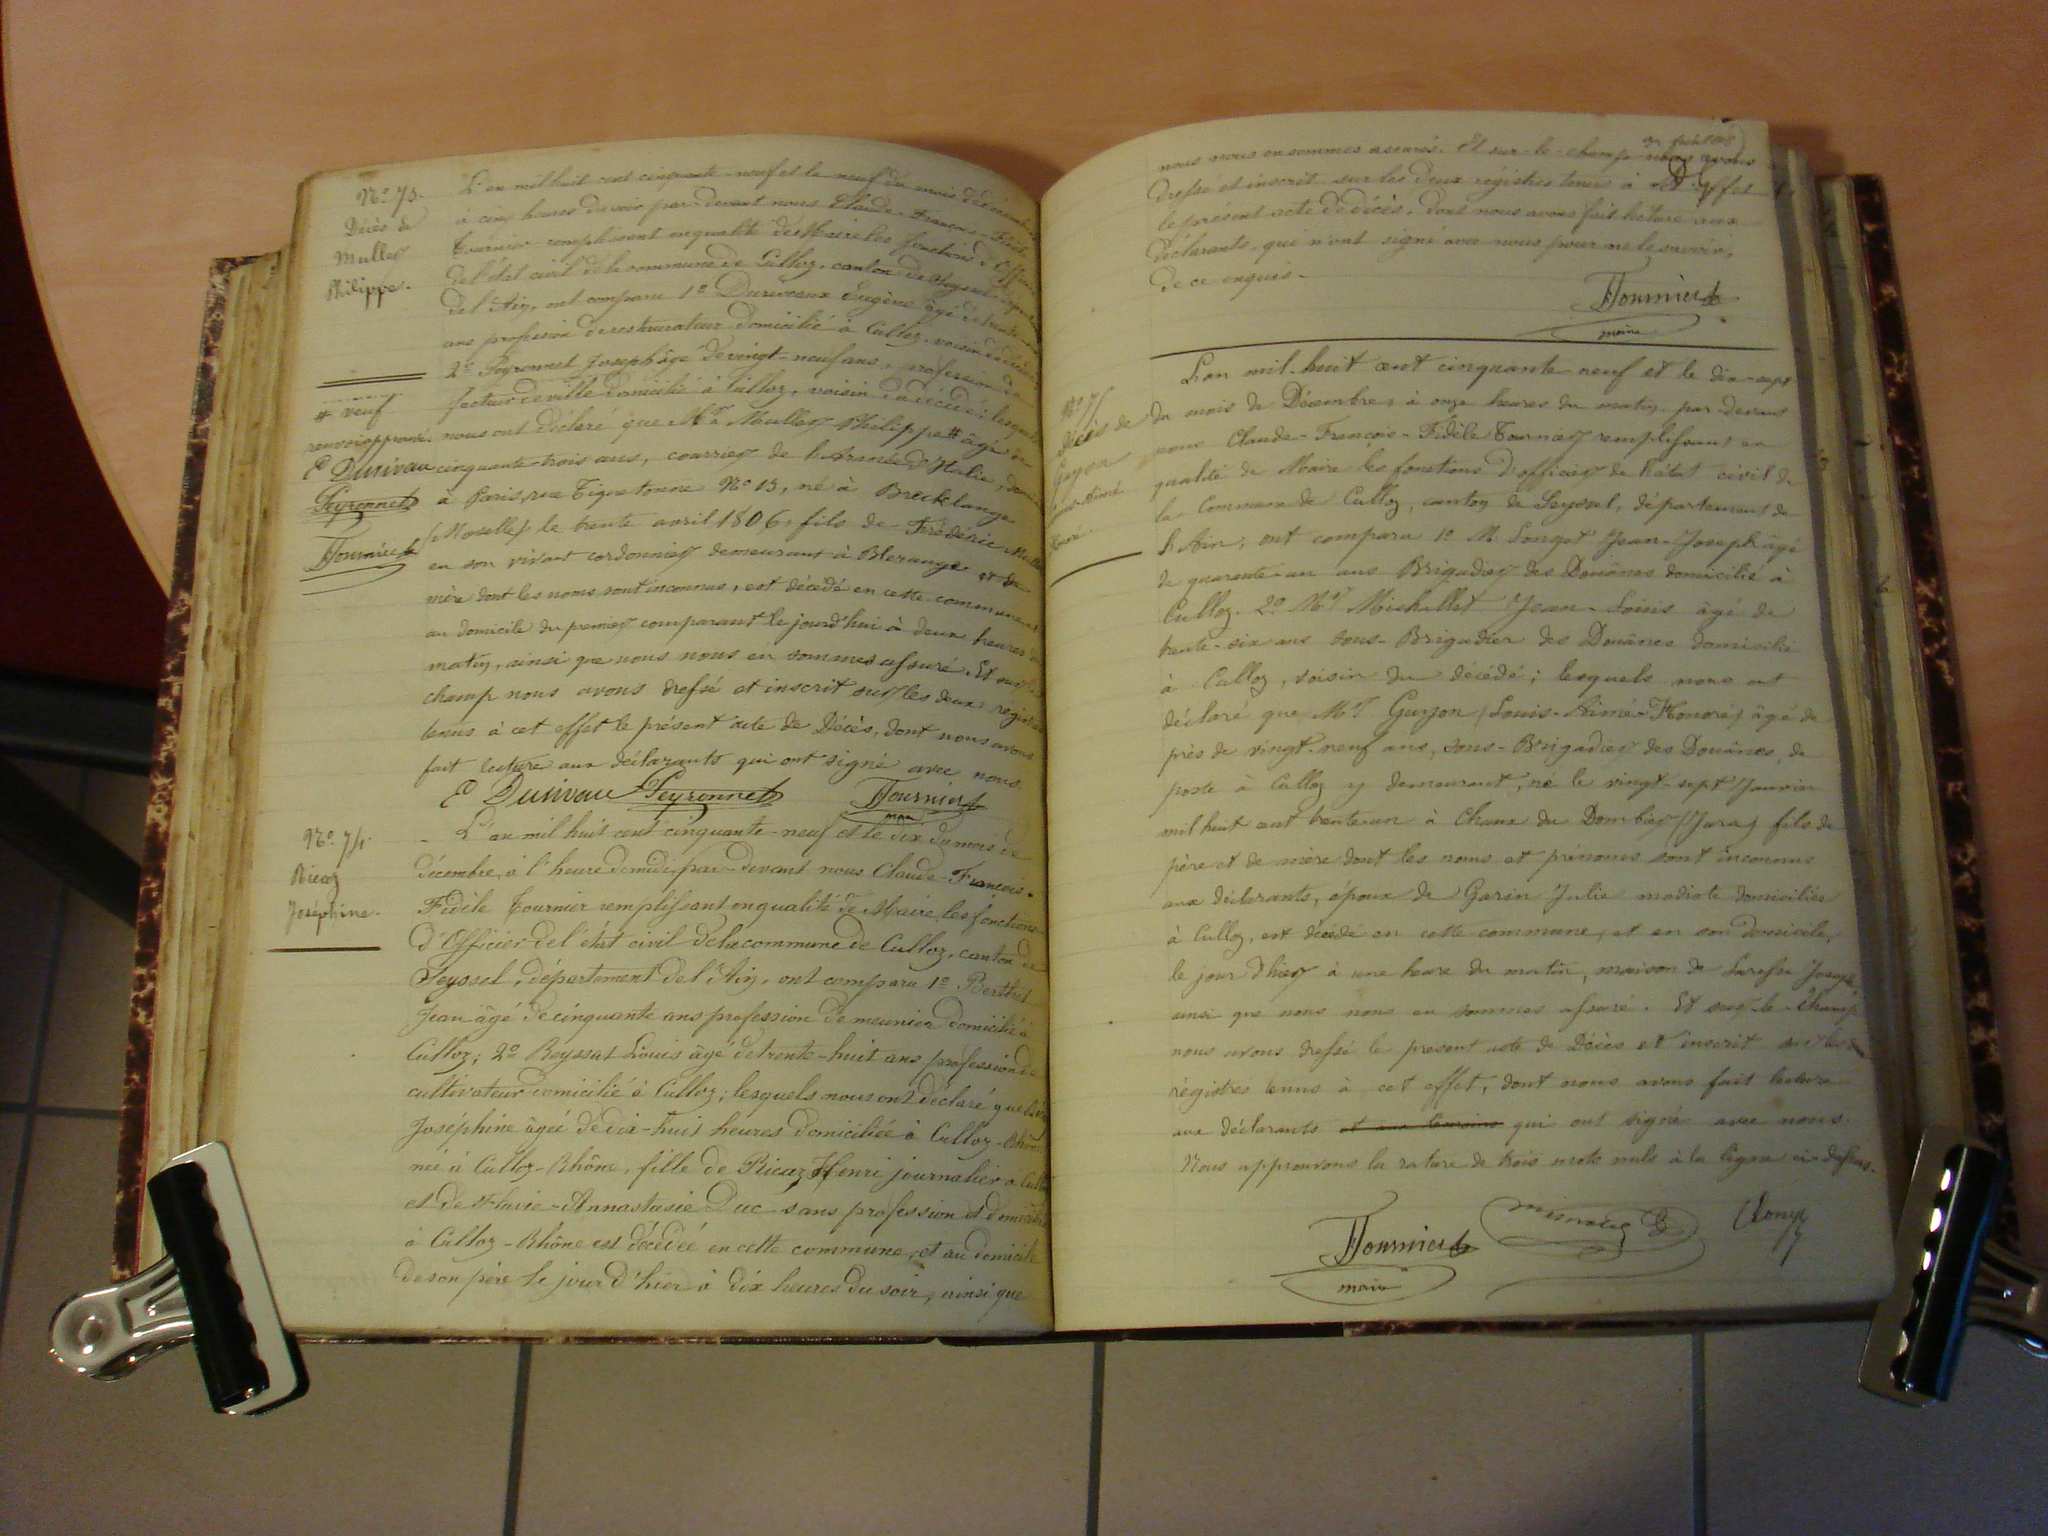 N° 73.
Décès de
Muller
Philippe.
L'an mil huit cent cinquante-neuf et le neuf du mois de décembre
à cinq heures du soir par-devant nous Claude-François-Fidèle
Tournier remplissant en qualité de Maire les fonctions d'Officier
de l'état civil de la commune de Culloz, canton de Seyssel,
de l'Ain, ont comparu 1° Duriveaux Eugène âgé de trente
ans profession de restaurateur domicilié à Culloz, voisin du décédé
2° Peyronnet Joseph âgé de vingt-neuf ans, profession de
facteur de ville domicilié à Culloz, voisin du décédé; lesquels
nous ont déclaré que Mr Muller Philippe # âgé de
cinquante-trois ans, courrier de l'Armée d'Italie,
à Paris, rue Tiquetonne N° 13, né à Brecklange
(Moselle) le trente avril 1806, fils de Frédéric
en son vivant cordonnier demeurant à Blerange et de
mère dont les noms sont inconnus, est décédé en cette commune
au domicile du premier comparant le jourd'hui à deux heures du
matin, ainsi que nous nous en sommes assuré. Et sur le
champ nous avons dressé et inscrit sur les deux registres
tenus à cet effet le présent acte de Décès, dont nous avons
fait lecture aux déclarants qui ont signé avec nous.
E Duriveau Peyronnet Tournier
maire
# veuf
renvoi approuvé.
E Duriveau
Peyronnet
Tournier
N° 74.
Ricaz
Joséphine.
L'an mil huit cent cinquante-neuf et le dix du mois de
décembre, à l'heure de midi, par-devant nous Claude-François-
Fidèle Tournier remplissant en qualité de Maire, les fonctions
d'Officier de l'état civil de la commune de Culloz, canton de
Seyssel, département de l'Ain, ont comparu 1° Berthet
Jean âgé de cinquante ans profession de meunier domicilié à
Culloz; 2° Beyssut Louis âgé de trente-huit ans profession de
cultivateur domicilié à Culloz; lesquels nous ont déclaré que
Joséphine âgée de dix-huit heures domiciliée à Culloz-Rhône
née à Culloz-Rhône, fille de Ricaz Henri journalier à Culloz
et de Flavie-Annastasie Duc sans profession et domiciliée
à Culloz-Rhône est décédée en cette commune, et au domicile
de son père le jour d'hier à dix heures du soir, ainsi que
nous nous en sommes assurés. Et sur-le-champ nous avons
dressé et inscrit sur les deux régistres tenus à cet effet
le présent acte de décès, dont nous avons fait lecture aux
déclarants, qui n'ont signé avec nous pour ne le savoir,
de ce enquis.
Tournier
maire
N° 75
décès de
Guyon
Louis-Aimé
Honoré
L'an mil-huit cent cinquante neuf et le dix-sept
du mois de Décembre, à onze heures du matin par-devant
nous Claude-François-Fidèle Tournier remplissant en
qualité de Maire les fonctions d'officier de l'état civil de
la Commune de Culloz, canton de Seyssel, département de
l'Ain; ont comparu 1° M. Longet Jean-Joseph âgé
de quarante-un ans Brigadier des Douânes domicilié à
Culloz. 2° Mr Michallet Jean-Louis âgé de
trente-six ans sous-Brigadier des Douânes domicilié
à Culloz, voisin du décédé; lesquels nous ont
déclaré que Mr Guyon (Louis-Aimé-Honoré) âgé de
près de vingt-neuf ans, sous-Brigadier des Douânes, de
poste à Culloz y demeurant, né le vingt-sept Janvier
mil huit cent trente-un à Chaux du Dombief (Jura) fils de
père et de mère dont les noms et prénoms sont inconnus
aux déclarants, époux de Garin Julie modiste domiciliée
à Culloz, est décédé en cette commune, et en son domicile,
le jour d'hier à une heure du matin, maison de Joseph
ainsi que nous nous en sommes assuré. Et sur-le-champ
nous avons dressé le présent acte de Décès et inscrit sur les
régistres tenus à cet effet, dont nous avons fait lecture
aux déclarants et aux témoins qui ont signé avec nous.
Nous approuvons la rature de trois mots nuls à la ligne ci-dessus.
Tournier
maire